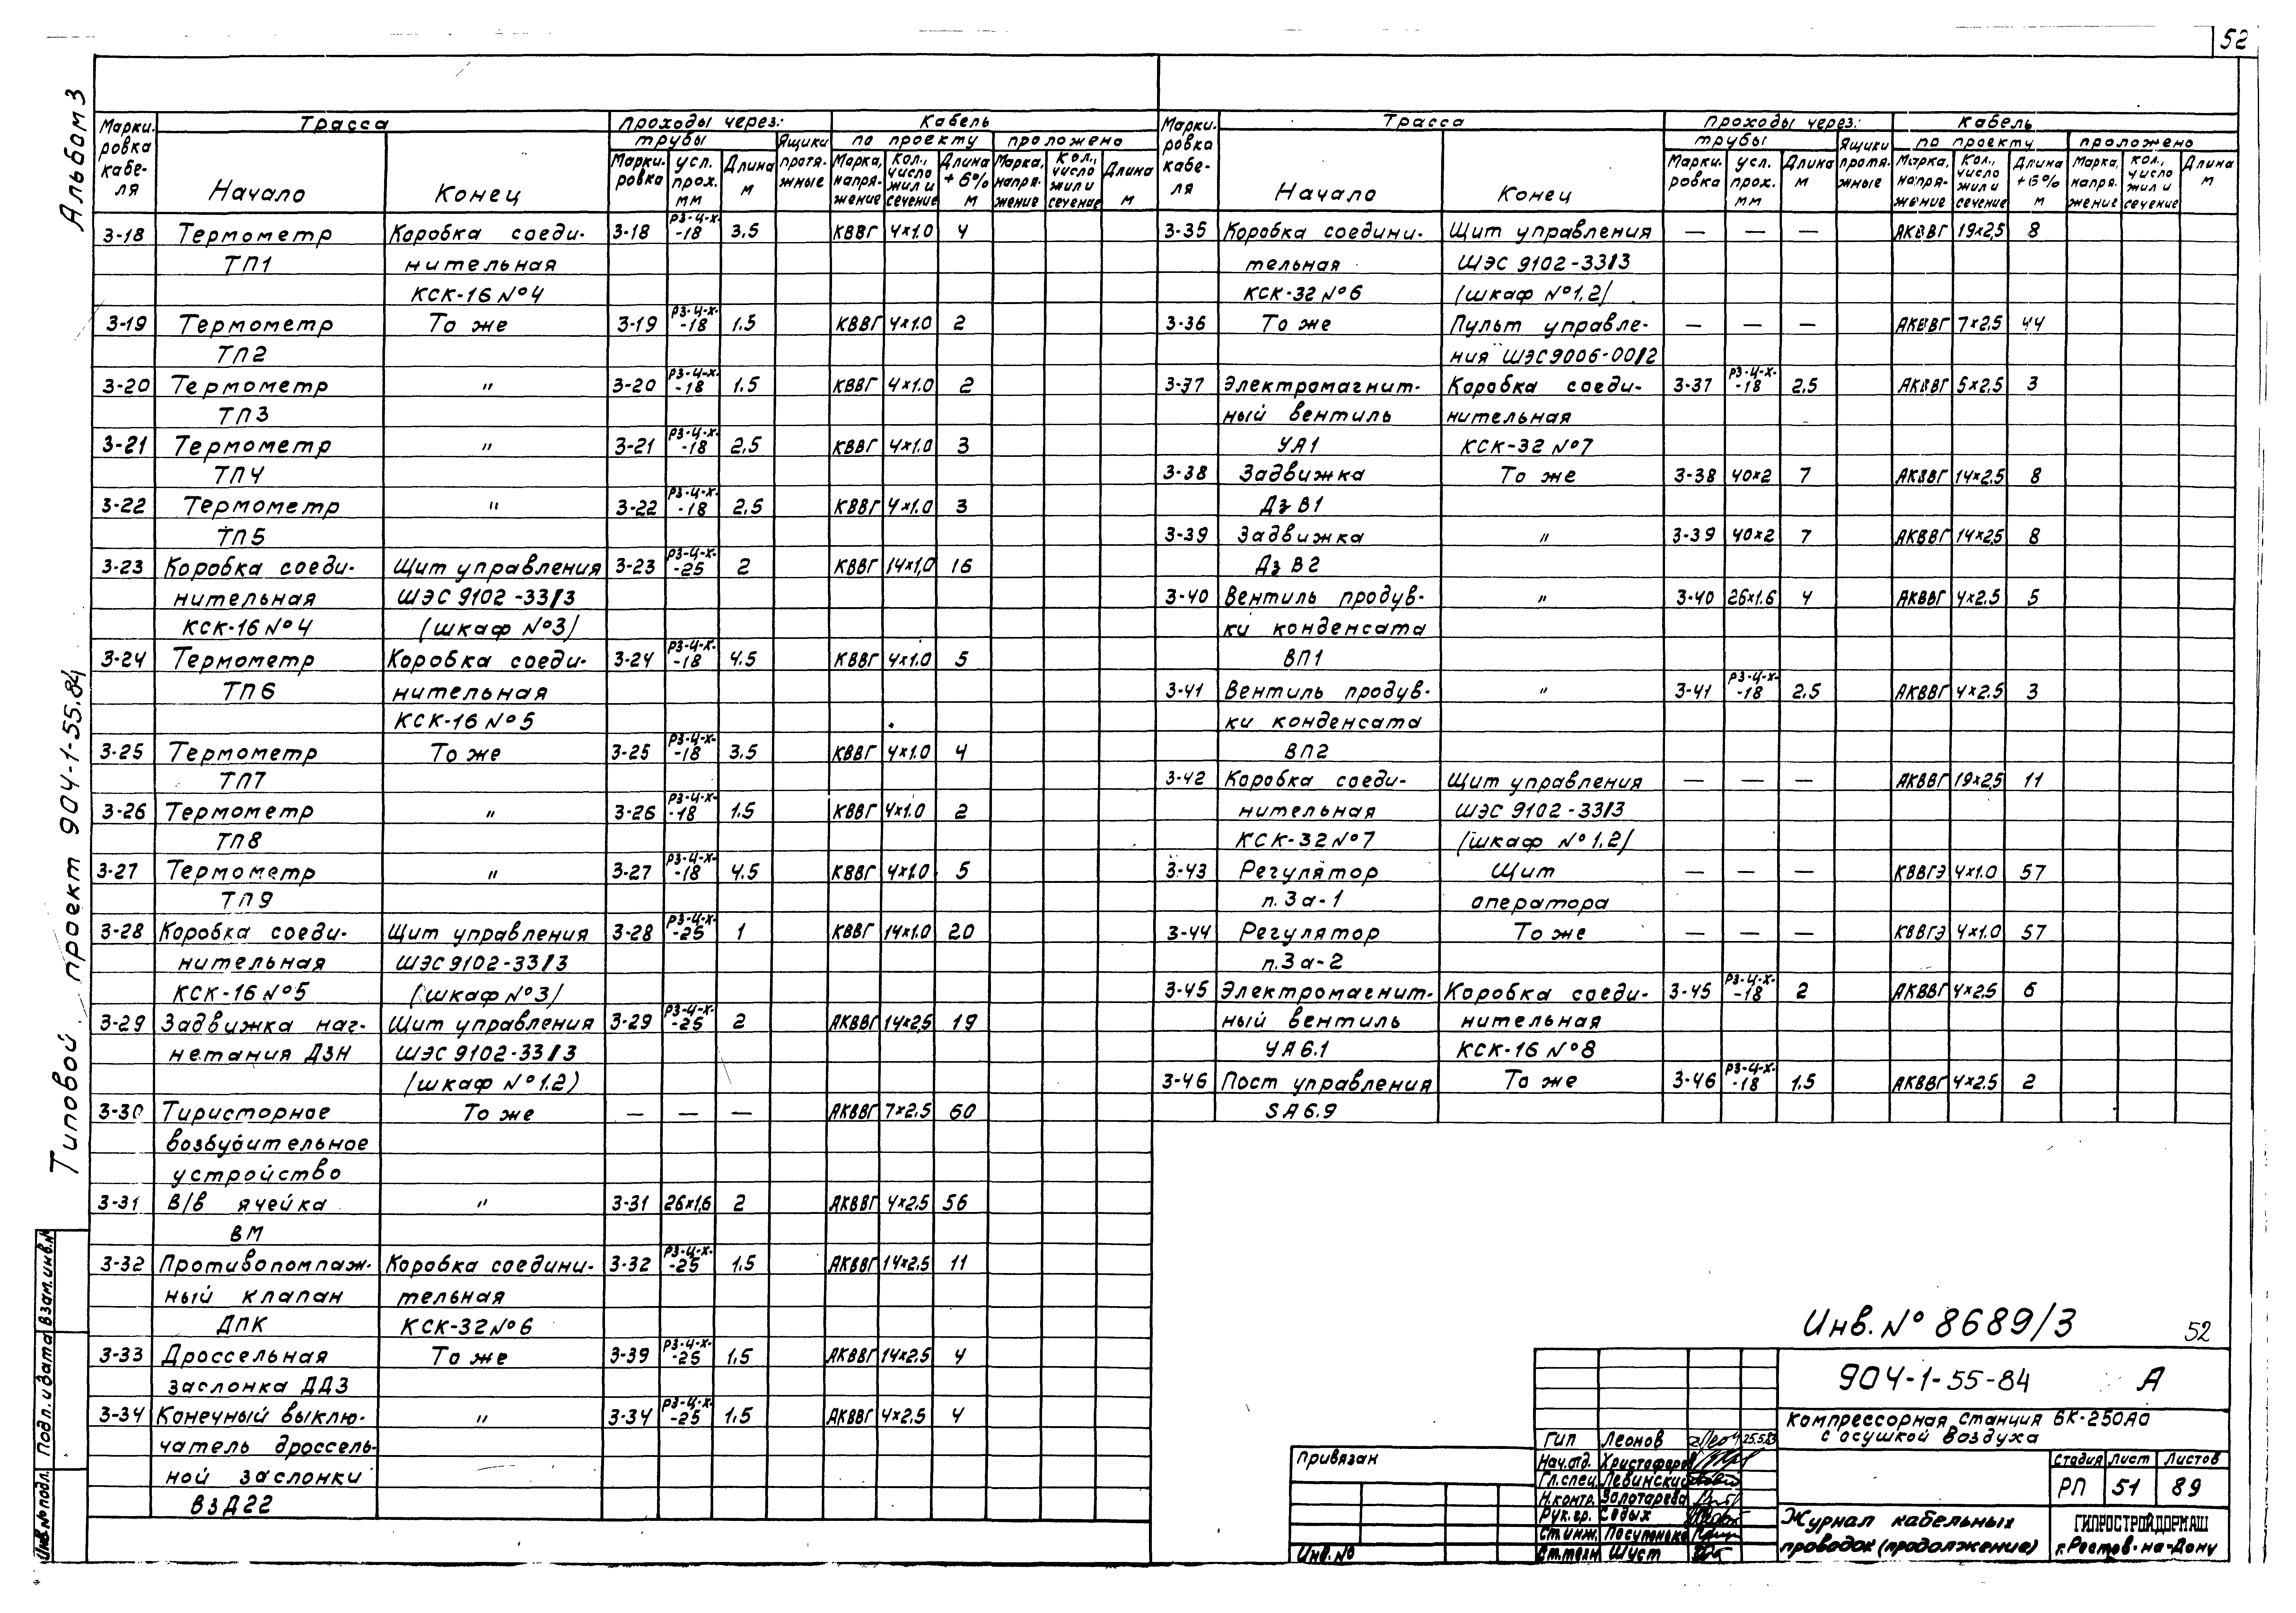 52
Альбом 3
Типовой проект 904-1-55.84
Марки- ровка кабе- ля | Трасса | Проходы через: | Кабель
трубы | Ящики протя- жные | по проекту | проложено
Начало | Конец | Марки- ровка | усл. прох. мм | Длина м | Марка, напря- жение | Кол., число жил и сечение | Длина +6% м | Марка, напря- жение | Кол., число жил и сечение | Длина м
3-18 Термометр Коробка соеди- 3-18 РЗ-Ц-Х-18 3.5 КВВГ 4×1.0 4
ТП1 нительная
КСК-16 №4
3-19 Термометр То же 3-19 РЗ-Ц-Х-18 1.5 КВВГ 4×1.0 2
ТП2
3-20 Термометр " 3-20 РЗ-Ц-Х-18 1.5 КВВГ 4×1.0 2
ТП3
3-21 Термометр " 3-21 РЗ-Ц-Х-18 2.5 КВВГ 4×1.0 3
ТП4
3-22 Термометр " 3-22 РЗ-Ц-Х-18 2.5 КВВГ 4×1.0 3
ТП5
3-23 Коробка соеди- Щит управления 3-23 РЗ-Ц-Х-25 2 КВВГ 14×1,0 16
нительная ШЭС 9102-33/3
КСК-16 №4 (шкаф №3)
3-24 Термометр Коробка соеди- 3-24 РЗ-Ц-Х-18 4.5 КВВГ 4×1.0 5
ТП6 нительная
КСК-16 №5
3-25 Термометр То же 3-25 РЗ-Ц-Х-18 3.5 КВВГ 4×1.0 4
ТП7
3-26 Термометр " 3-26 РЗ-Ц-Х-18 1.5 КВВГ 4×1.0 2
ТП8
3-27 Термометр " 3-27 РЗ-Ц-Х-18 4.5 КВВГ 4×1.0 5
ТП9
3-28 Коробка соеди- Щит управления 3-28 РЗ-Ц-Х-25 1 КВВГ 14×1.0 20
нительная ШЭС 9102-33/3
КСК-16 №5 (шкаф №3)
3-29 Задвижка наг- Щит управления 3-29 РЗ-Ц-Х-25 2 АКВВГ 14×2,5 19
нетания ДЗН ШЭС 9102-33/3
(шкаф №1.2)
3-30 Тиристорное То же — — — АКВВГ 7×2.5 60
возбудительное
устройство
3-31 В/в ячейка " 3-31 26×1,6 2 АКВВГ 4×2.5 56
ВМ
3-32 Противопомпаж- Коробка соедини- 3-32 РЗ-Ц-Х-25 1.5 АКВВГ 14×2.5 11
ный клапан тельная
ДПК КСК-32 №6
3-33 Дроссельная То же 3-39 РЗ-Ц-Х-25 1.5 АКВВГ 14×2.5 4
заслонка ДДЗ
3-34 Конечный выклю- " 3-34 РЗ-Ц-Х-25 1.5 АКВВГ 4×2.5 4
чатель дроссель-
ной заслонки
ВЗД22
Марки- ровка кабе- ля | Трасса | Проходы через: | Кабель
трубы | Ящики протя- жные | по проекту | проложено
Начало | Конец | Марки- ровка | усл. прох. мм | Длина м | Марка, напря- жение | Кол., число жил и сечение | Длина +6% м | Марка, напря- жение | Кол., число жил и сечение | Длина м
3-35 Коробка соедини- Щит управления — — — АКВВГ 19×2,5 8
тельная ШЭС 9102-33/3
КСК-32 №6 (шкаф №1.2)
3-36 То же Пульт управле- — — — АКВВГ 7×2.5 44
ния ШЭС9006-00/2
3-37 Электромагнит- Коробка соеди- 3-37 РЗ-Ц-Х-18 2.5 АКВВГ 5×2.5 3
ный вентиль нительная
УА1 КСК-32 №7
3-38 Задвижка То же 3-38 40×2 7 АКВВГ 14×2.5 8
Дз В1
3-39 Задвижка " 3-39 40×2 7 АКВВГ 14×2.5 8
Дз В2
3-40 Вентиль продув- " 3-40 26×1.6 4 АКВВГ 4×2.5 5
ки конденсата
ВП1
3-41 Вентиль продув- " 3-41 РЗ-Ц-Х-18 2.5 АКВВГ 4×2.5 3
ки конденсата
ВП2
3-42 Коробка соеди- Щит управления — — — АКВВГ 19×2,5 11
нительная ШЭС 9102-33/3
КСК-32 №7 (шкаф №1.2)
3-43 Регулятор Щит — — — КВВГЭ 4×1.0 57
п. 3а-1 оператора
3-44 Регулятор То же — — — КВВГЭ 4×1.0 57
п. 3а-2
3-45 Электромагнит- Коробка соеди- 3-45 РЗ-Ц-Х-18 2 АКВВГ 4×2.5 6
ный вентиль нительная
УА6.1 КСК-16 №8
3-46 Пост управления То же 3-46 РЗ-Ц-Х-18 1.5 АКВВГ 4×2.5 2
SA6.9
Инв. № 8689/3 52
904-1-55-84 А
Компрессорная станция 6К-250А0
с осушкой воздуха
Привязан
Инв. №
Гип Леонов 25.5.83
Нач.отд. Христофоров
Гл.спец. Левинский
Н.контр. Золотарева
Рук.гр. Седых
Ст.инж.
Ст.техн. Шуст
Стадия Лист Листов
РП 51 89
Журнал кабельных
проводок (продолжение)
ГИПРОСТРОЙДОРМАШ
г. Ростов-на-Дону
Инв.№ подл. Подп. и дата Взам.инв.№